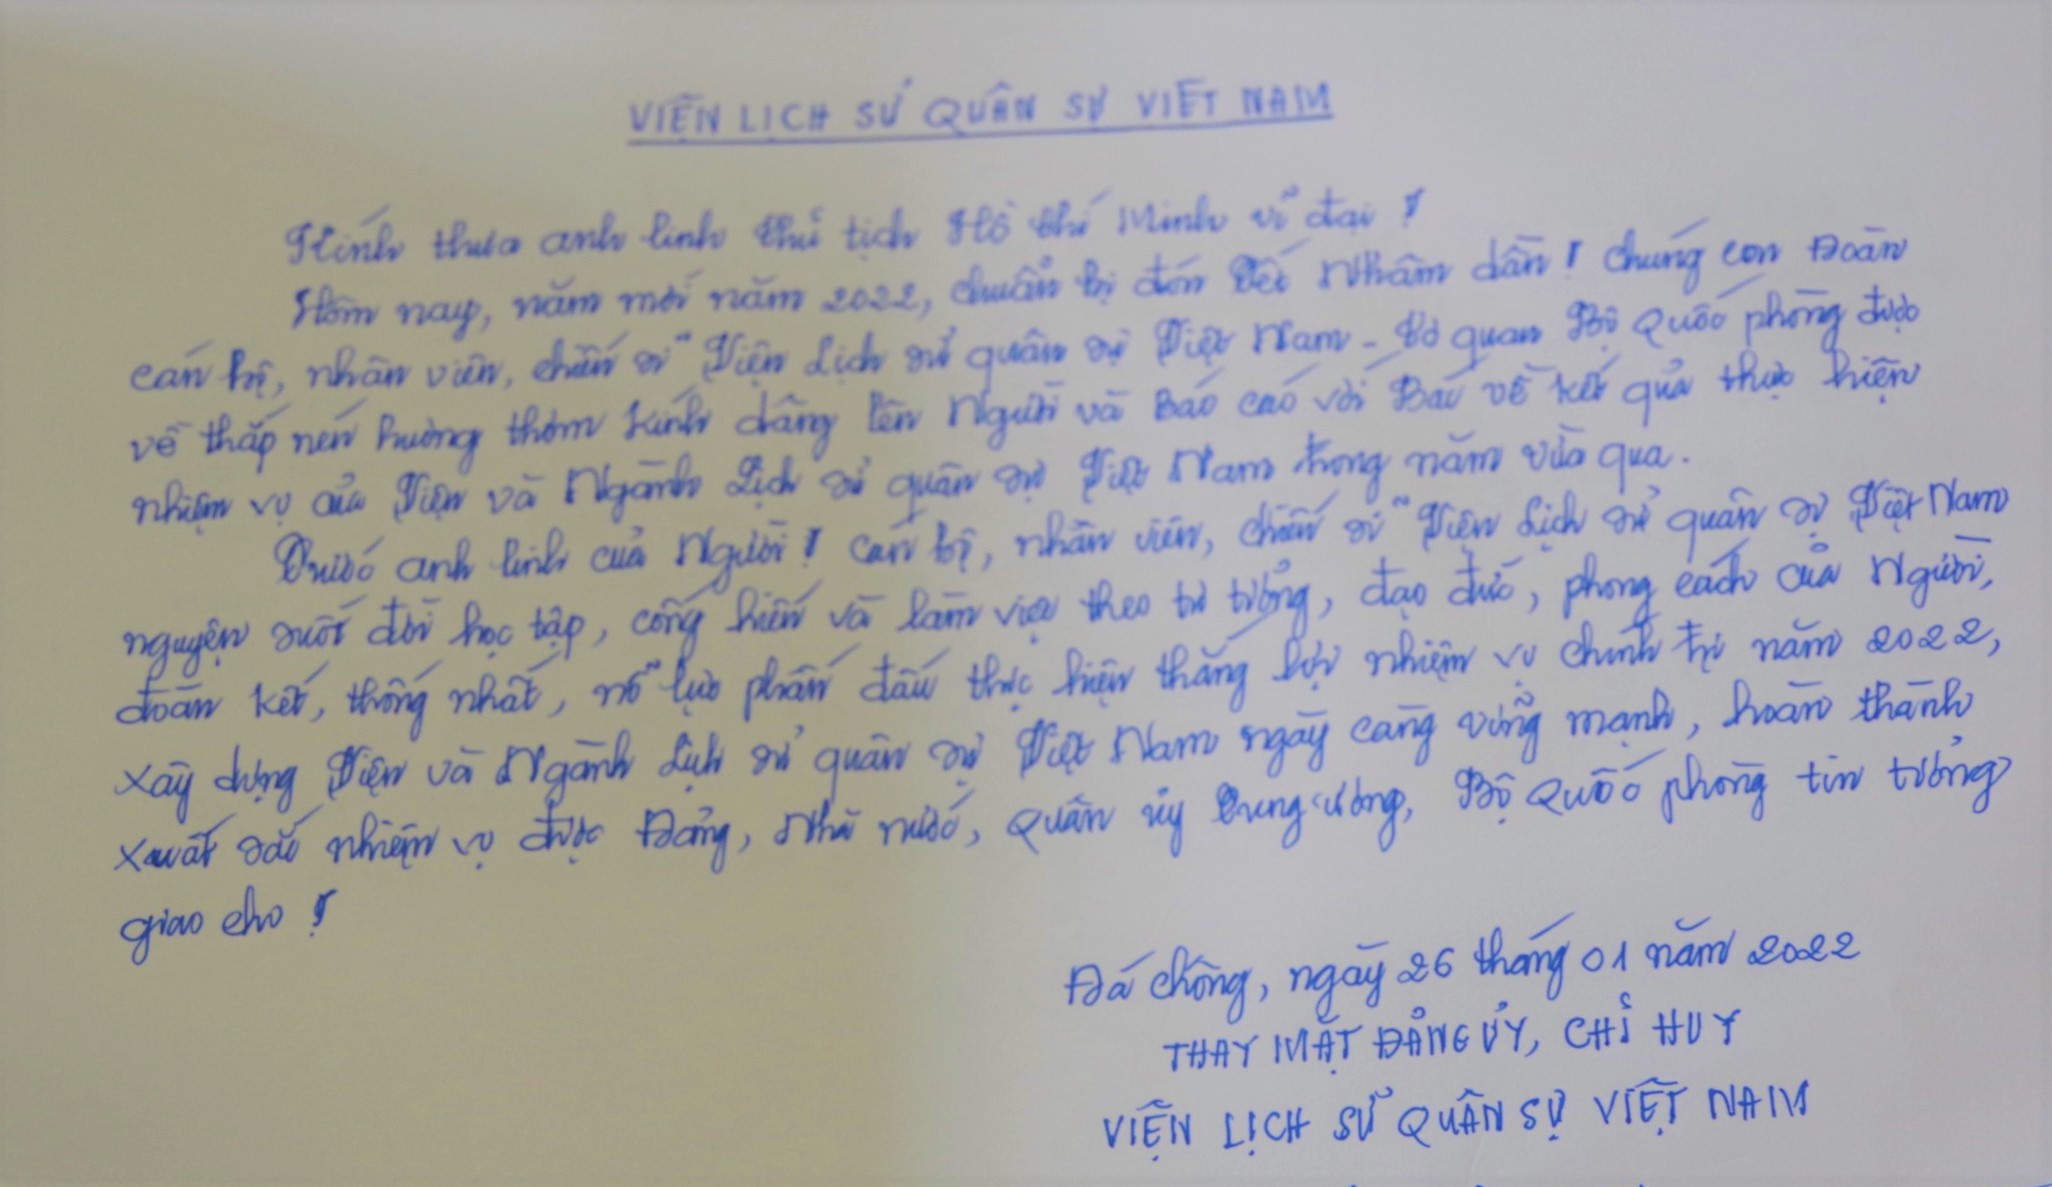 VIỆN LỊCH SỬ QUÂN SỰ VIỆT NAM
Kính thưa anh linh Chủ tịch Hồ Chí Minh vĩ đại!
Hôm nay, năm mới năm 2022, chuẩn bị đón Tết Nhâm dần! Chúng con Đoàn
cán bộ, nhân viên, chiến sĩ Viện Lịch sử quân sự Việt Nam - Cơ quan Bộ Quốc phòng được
về thắp nén hương thơm kính dâng lên Người và Báo cáo với Bác về kết quả thực hiện
nhiệm vụ của Viện và Ngành Lịch sử quân sự Việt Nam trong năm vừa qua.
Trước anh linh của Người! Cán bộ, nhân viên, chiến sĩ Viện Lịch sử quân sự Việt Nam
nguyện suốt đời học tập, cống hiến và làm việc theo tư tưởng, đạo đức, phong cách của Người,
đoàn kết, thống nhất, nỗ lực phấn đấu thực hiện thắng lợi nhiệm vụ chính trị năm 2022,
xây dựng Viện và Ngành Lịch sử quân sự Việt Nam ngày càng vững mạnh, hoàn thành
xuất sắc nhiệm vụ được Đảng, Nhà nước, Quân ủy Trung ương, Bộ Quốc phòng tin tưởng
giao cho!
Đá chông, ngày 26 tháng 01 năm 2022
THAY MẶT ĐẢNG ỦY, CHỈ HUY
VIỆN LỊCH SỬ QUÂN SỰ VIỆT NAM